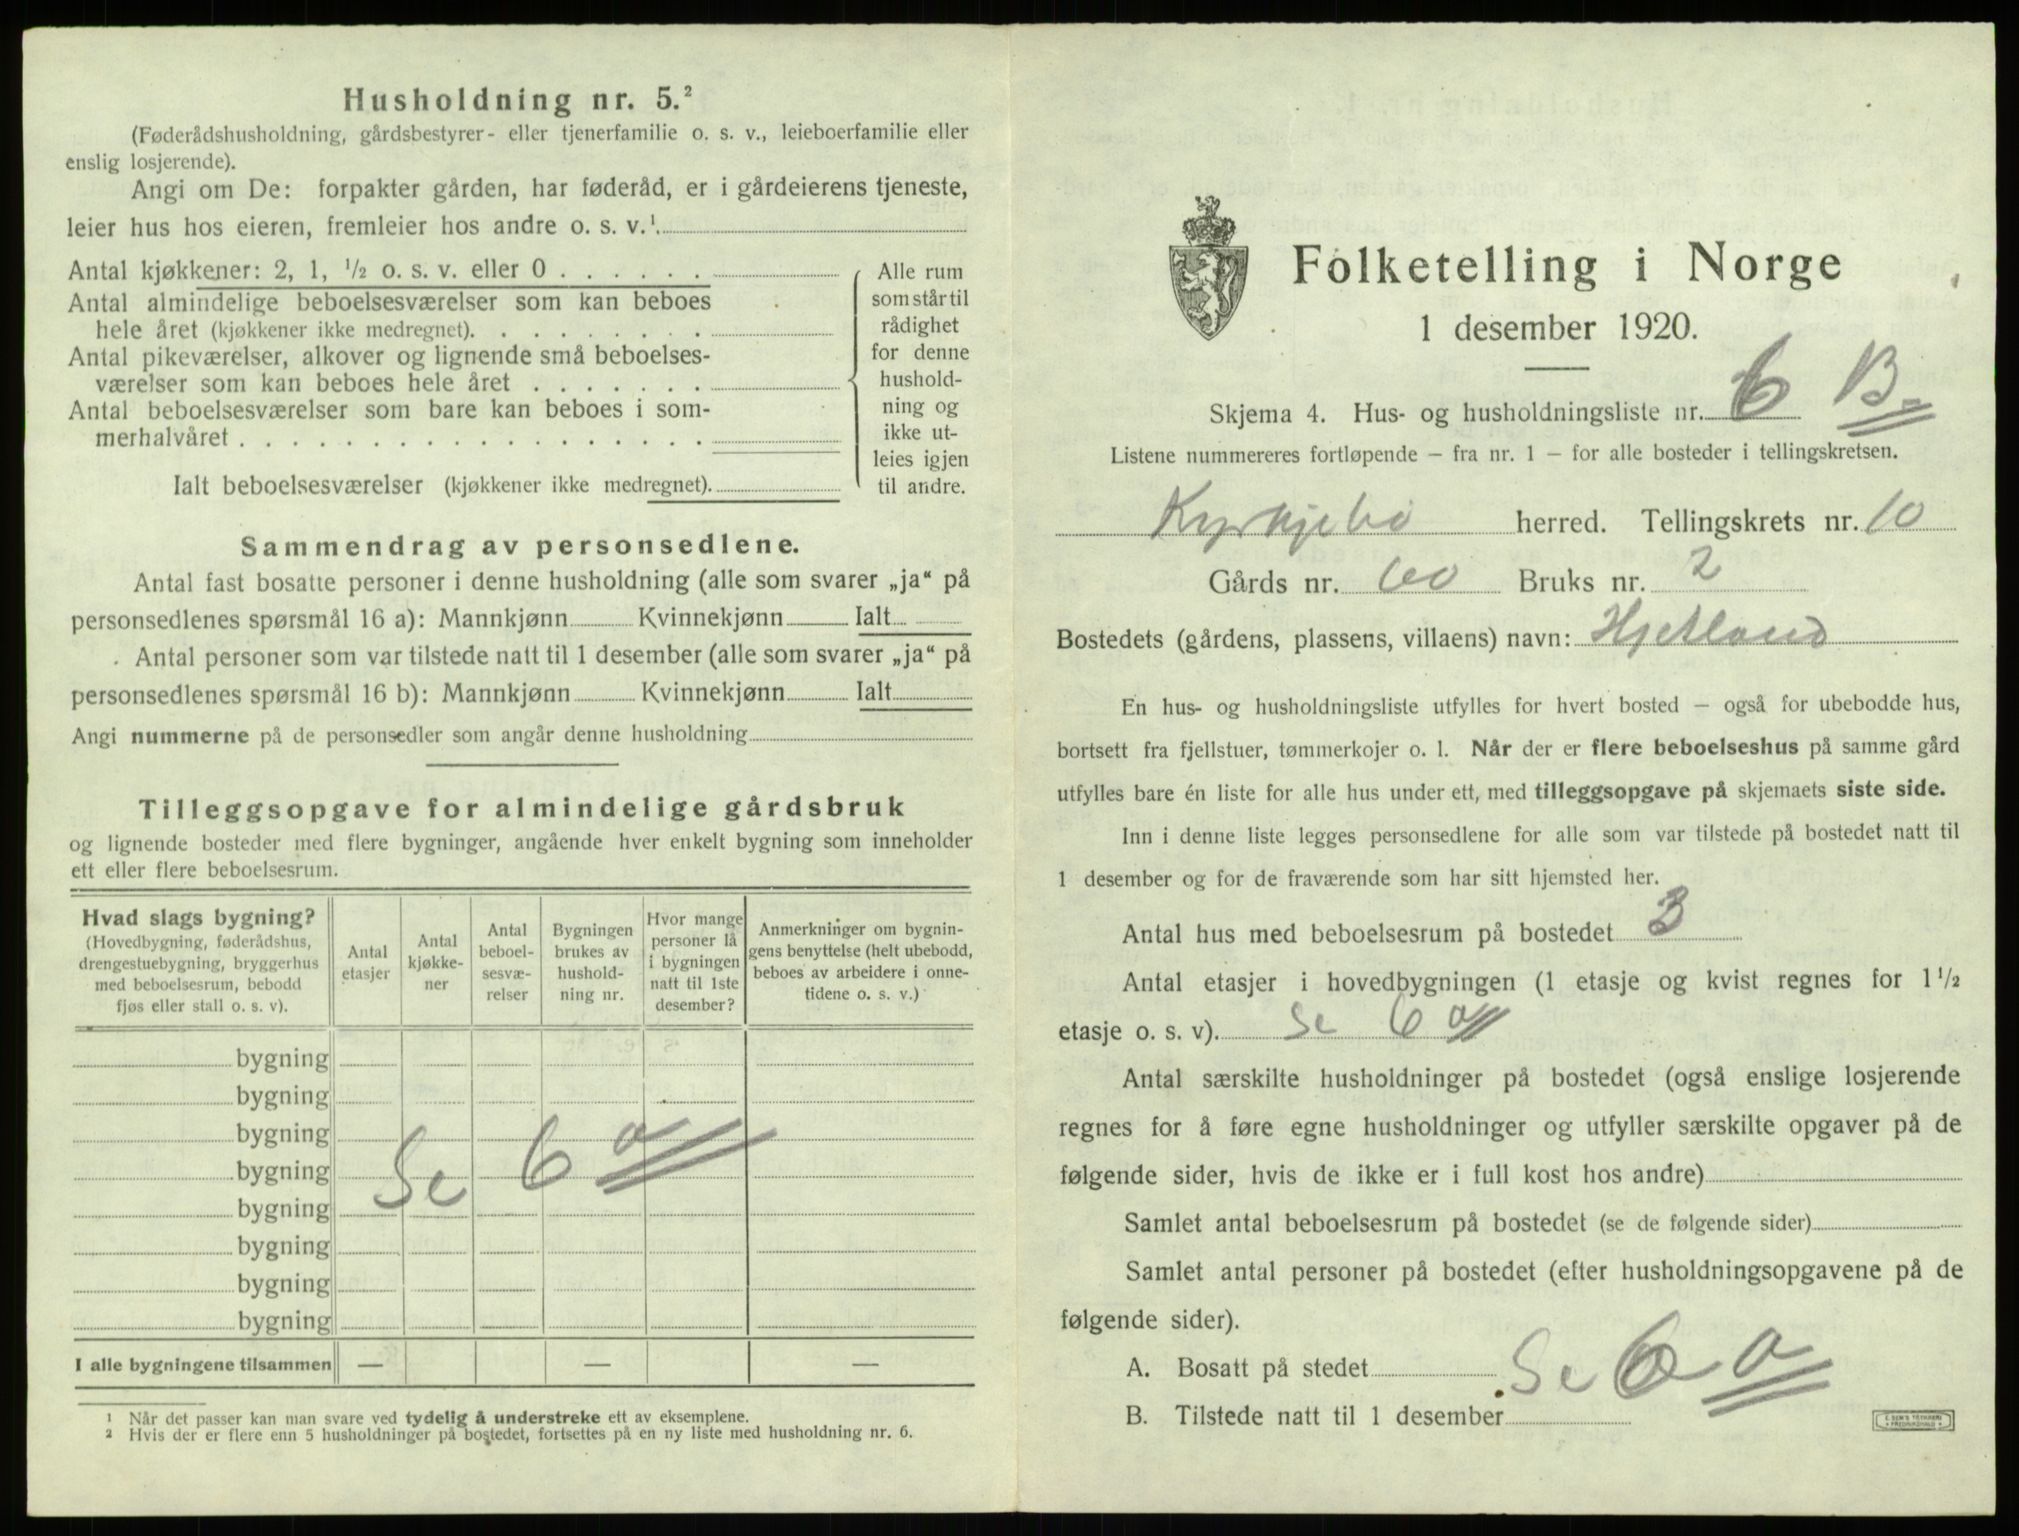 Husholdning nr. 5.²
(Føderådshusholdning, gårdsbestyrer- eller tjenerfamilie o. s. v., leieboerfamilie eller
enslig losjerende).
Angi om De: forpakter gården, har føderåd, er i gårdeierens tjeneste,
leier hus hos eieren, fremleier hos andre o. s. v.¹.
Antal kjøkkener: 2, 1, ½ o. s. v. eller 0 . . . . . .
Antal almindelige beboelsesværelser som kan beboes
hele året (kjøkkener ikke medregnet). . . . . . . . .
Antal pikeværelser, alkover og lignende små beboelses-
værelser som kan beboes hele året . . . . . . .
Antal beboelsesværelser som bare kan beboes i som-
merhalvåret . . . . . . . . . . . . . . . . . .
Ialt beboelsesværelser (kjøkkener ikke medregnet).
Alle rum
som står til
rådighet
for denne
hushold-
ning og
ikke ut-
leies igjen
til andre.
Sammendrag av personsedlene.
Antal fast bosatte personer i denne husholdning (alle som svarer „ja“ på
personsedlenes spørsmål 16 a): Mannkjønn Kvinnekjønn Ialt
Antal personer som var tilstede natt til 1 desember (alle som svarer „ja“ på
personsedlenes spørsmål 16 b): Mannkjønn Kvinnekjønn Ialt
Angi nummerne på de personsedler som angår denne husholdning
Tilleggsopgave for almindelige gårdsbruk
og lignende bosteder med flere bygninger, angående hver enkelt bygning som inneholder
ett eller flere beboelsesrum.
Hvad slags bygning?
(Hovedbygning, føderådshus,
drengestuebygning, bryggerhus
med beboelsesrum, bebodd
fjøs eller stall o. s. v).
Antal
etasjer
Antal
kjøkke-
ner
Antal
beboel-
sesvæ-
relser
Bygningen
brukes av
hushold-
ning nr.
Hvor mange
personer lå
i bygningen
natt til 1ste
desember?
Anmerkninger om bygnin-
gens benyttelse (helt ubebodd,
beboes av arbeidere i onne-
tidene o. s. v.)
bygning
bygning
bygning
bygning
bygning
bygning
bygning
bygning
Se 6 a
I alle bygningene tilsammen — — —
¹ Når det passer kan man svare ved tydelig å understreke ett av eksemplene.
² Hvis der er flere enn 5 husholdninger på bostedet, fortsettes på en ny liste med husholdning nr. 6.
Folketelling i Norge
1 desember 1920.
Skjema 4. Hus- og husholdningsliste nr. 6 B.
Listene nummereres fortløpende – fra nr. 1 – for alle bosteder i tellingskretsen.
Kyrkjebø herred. Tellingskrets nr. 10
Gårds nr. 60 Bruks nr. 2
Bostedets (gårdens, plassens, villaens) navn: Hjetland
En hus- og husholdningsliste utfylles for hvert bosted – også for ubebodde hus,
bortsett fra fjellstuer, tømmerkojer o. l. Når der er flere beboelseshus på samme gård
utfylles bare én liste for alle hus under ett, med tilleggsopgave på skjemaets siste side.
Inn i denne liste legges personsedlene for alle som var tilstede på bostedet natt til
1 desember og for de fraværende som har sitt hjemsted her.
Antal hus med beboelsesrum på bostedet 3
Antal etasjer i hovedbygningen (1 etasje og kvist regnes for 1½
etasje o. s. v). Se 6 a
Antal særskilte husholdninger på bostedet (også enslige losjerende
regnes for å føre egne husholdninger og utfyller særskilte opgaver på de
følgende sider, hvis de ikke er i full kost hos andre)
Samlet antal beboelsesrum på bostedet (se de følgende sider)
Samlet antal personer på bostedet (efter husholdningsopgavene på de
følgende sider).
A. Bosatt på stedet Se 6 a
B. Tilstede natt til 1 desember